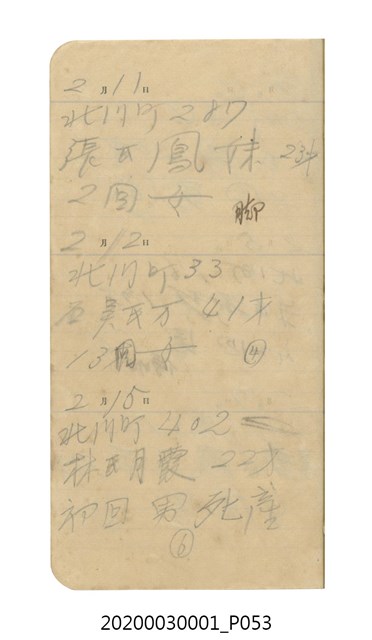 2月11日
北川町287
張氏鳳妹 23才
2回女
脚
2月12日
北川町33
吳氏方 41才
13回女 ④
2月15日
北川町402
林氏月霞 22才
初回 男 死產
⑥
20200030001_P053